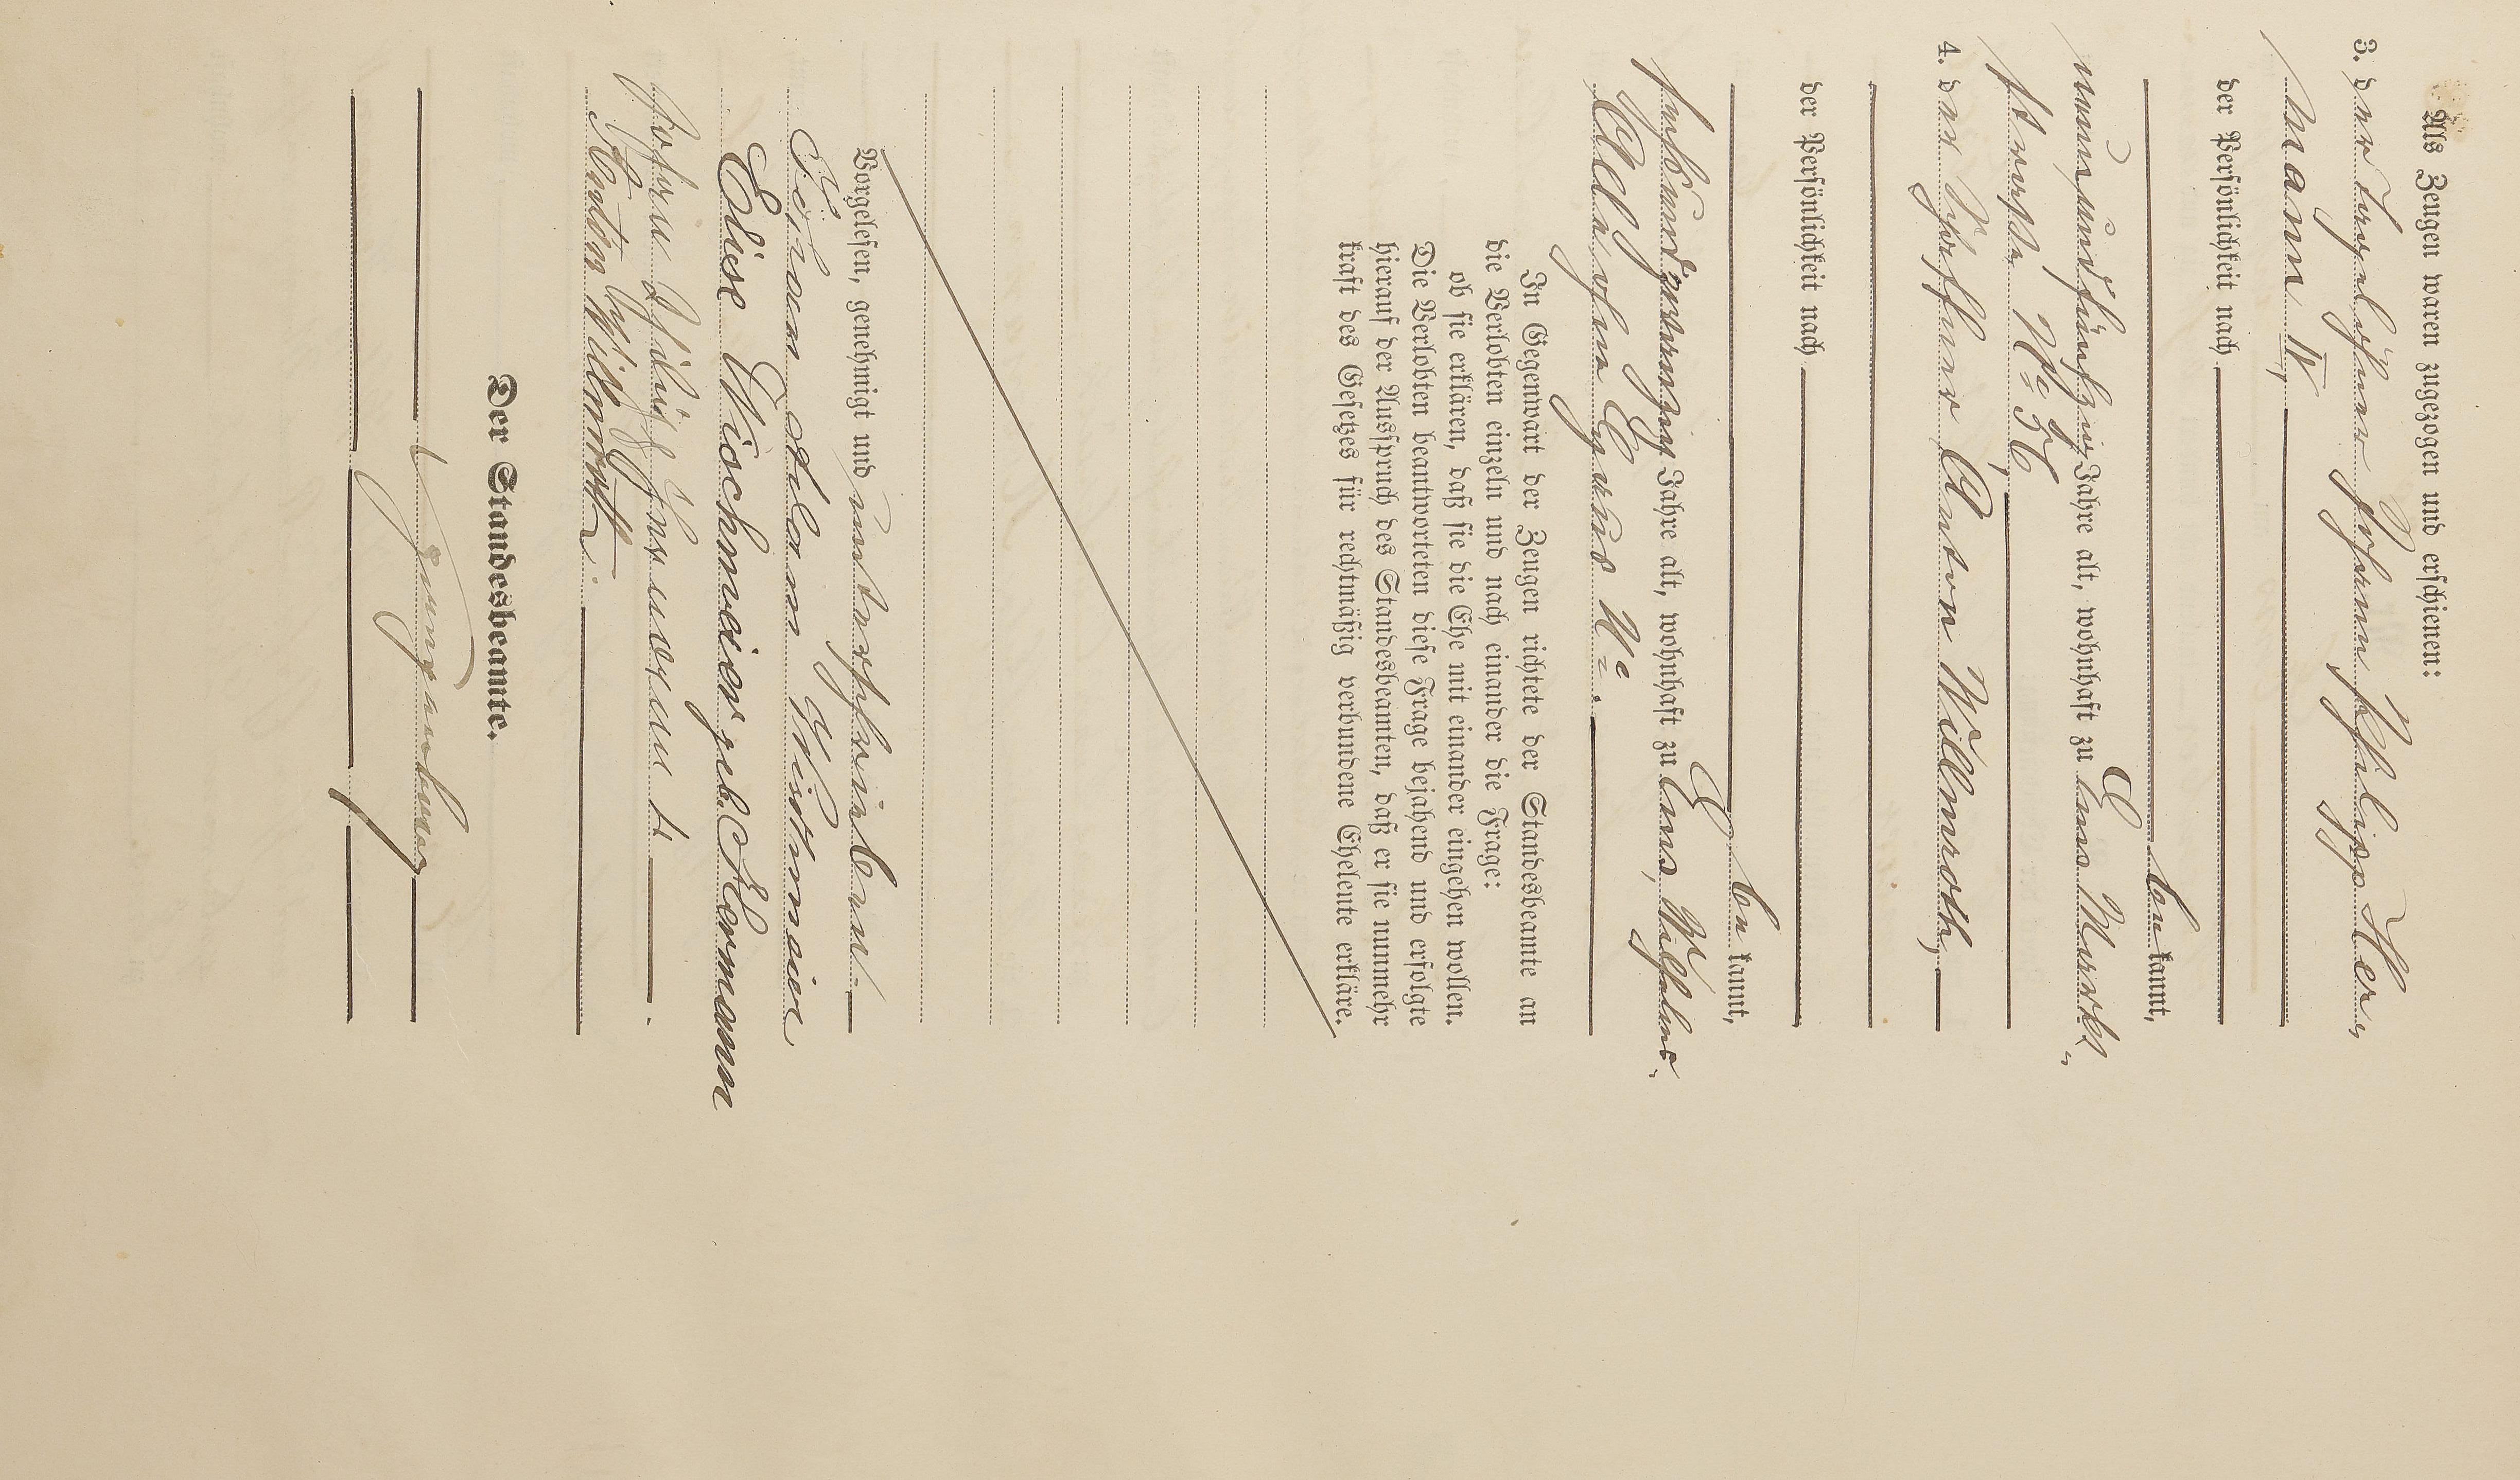 Als Zeugen waren zugezogen und erschienen:
3. der Tagelöhner Johann Philipp Her-
mann IV,
der Persönlichkeit nach
be kannt,
neunundfünfzig Jahre alt, wohnhaft zu Ems Markt-
straße No 56,
4. der Schlosser Anton Willmroth,
der Persönlichkeit nach
be kannt,
sechsundzwanzig Jahre alt, wohnhaft zu Ems,
No
In Gegenwart der Zeugen richtete der Standesbeamte an
die Verlobten einzeln und nach einander die Frage:
ob sie erklären, daß sie die Ehe mit einander eingehen wollen.
Die Verlobten beantworteten diese Frage bejahend und erfolgte
hierauf der Ausspruch des Standesbeamten, daß er sie nunmehr
kraft des Gesetzes für rechtmäßig verbundene Eheleute erkläre.
Vorgelesen, genehmigt und unterschrieben.
Johann Adam
Elise Wischmeier geb. Hermann
Johann Philipp Hermann 4
Anton Willmroth.
Der Standesbeamte.